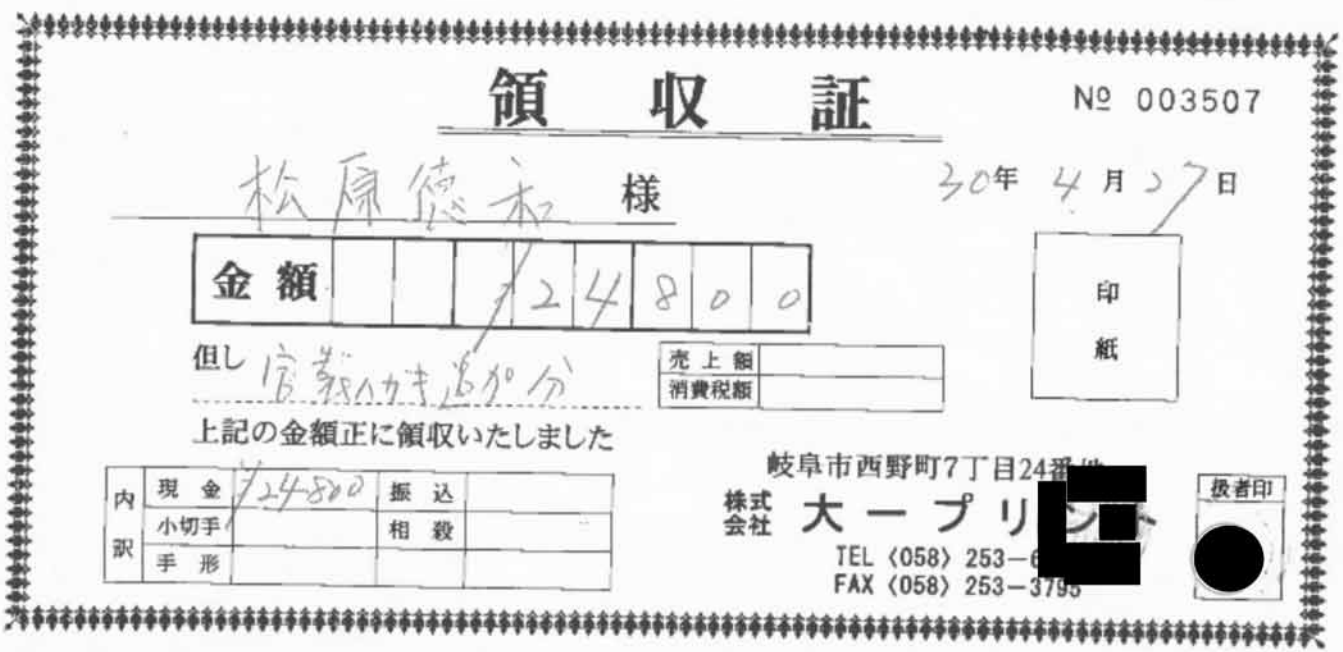 領収証
№ 003507
松原徳和 様
30年4月27日
金額 ¥24800
印紙
但し ハガキ追加分
売上額
消費税額
上記の金額正に領収いたしました
内訳
現金 ¥24800 振込
小切手 相殺
手形
岐阜市西野町7丁目24番
株式会社 大一プリント
TEL〈058〉253-
FAX〈058〉253-3795
扱者印